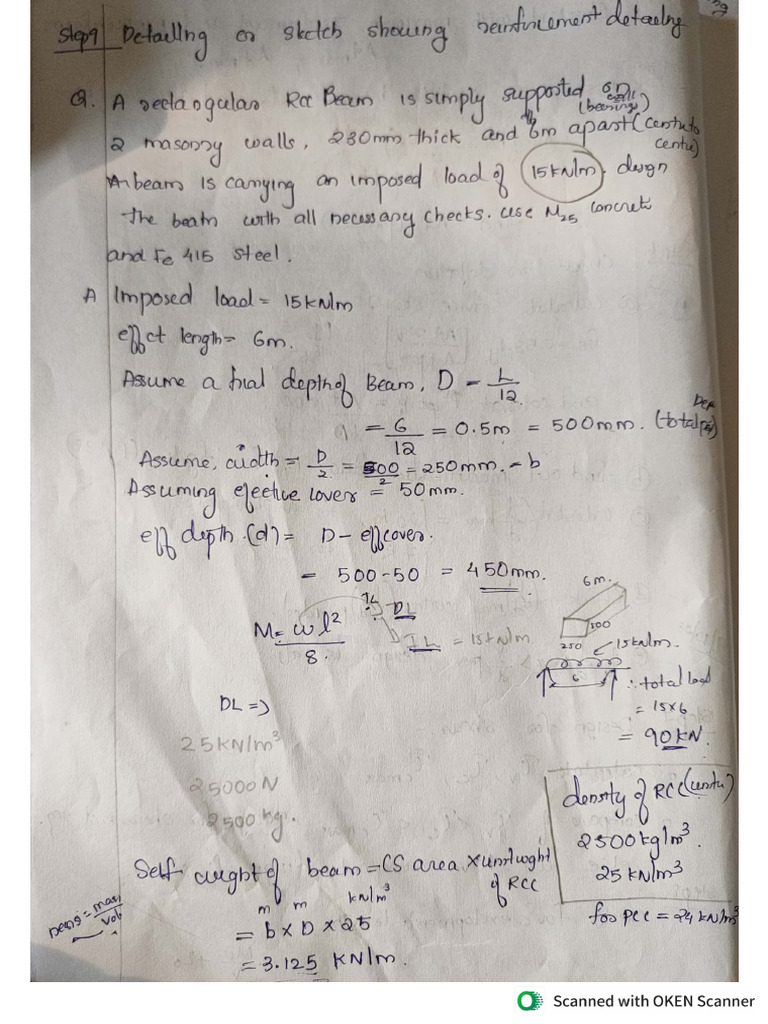 Step9 Detailing or sketch showing reinforcement detailing
Q. A rectangular Rcc Beam is simply supported on
(bearing)
2 masonry walls, 230mm thick and 6m apart (centre to
centre)
A beam is carrying an imposed load of 15kN/m, design
the beam with all necessary checks. use M25 concrete
and Fe 415 steel.
A Imposed load = 15kN/m
effct length = 6m.
Assume a trial depth of Beam, D = L/12
= 6/12 = 0.5m = 500mm. (total
Assume, width = D/2 = 500/2 = 250mm. = b
Assuming efective cover = 50mm.
eff depth (d) = D - eff cover.
= 500-50 = 450mm.
6m.
500
250
M = wl²/8. DL
IL = 15kN/m
15kN/m.
6
∴ total load
= 15x6
= 90KN.
DL =>
25KN/m³
25000N
2500kg.
density of RCC
2500kg/m³.
25 KN/m³
for pcc = 24 KN/m³
Self weight of beam = CS area x unit weight
of RCC
m m kN/m³
= b x D x 25
= 3.125 KN/m.
Dens = mass/vol
Scanned with OKEN Scanner